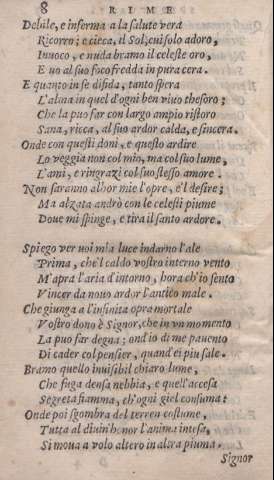 8 RIME
Debile, e inferma a la salute vera
Ricorro; e cieca, il Sol, cui solo adoro,
Inuoco, e nuda bramo il celeste oro,
E uo al suo foco fredda in pura cera.
E quanto in se disfida, tanto spera
L'alma in quel d'ogni ben viuo thesoro;
Che la puo far con largo ampio ristoro
Sana, ricca, al suo ardor calda, e sincera.
Onde con questi doni, e questo ardire
Lo veggia non col mio, ma col suo lume,
L'ami, e ringrazi col suo stesso amore.
Non saranno alhor mie l'opre, e'l desire;
Ma alzata andrò con le celesti piume
Doue mi spinge, e tira il santo ardore.
Spiego ver uoi mia luce indarno l'ale
Prima, che'l caldo vostro interno vento
M'apra l'aria d'intorno, hora ch'io sento
Vincer da nouo ardor l'antico male.
Che giunga a l'infinita opra mortale
Vostro dono è Signor, che in vn momento
La puo far degna; ond'io di me pauento
Di cader col pensier, quand'ei piu sale.
Bramo quello inuisibil chiaro lume,
Che fuga densa nebbia, e quell'accesa
Segreta fiamma, ch'ogni giel consuma:
Onde poi sgombra del terren costume,
Tutta al diuin honor l'anima intesa,
Si moua a volo altero in altra piuma.
Signor